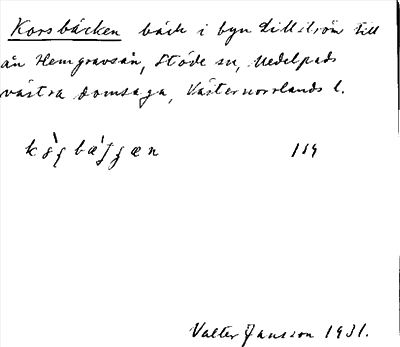 Korsbäcken bäck i byn Lillström till
ån Hemgravsån, Stöde sn, Medelpads
västra domsaga, Västernorrlands l.
119
Valter Jansson 1931.